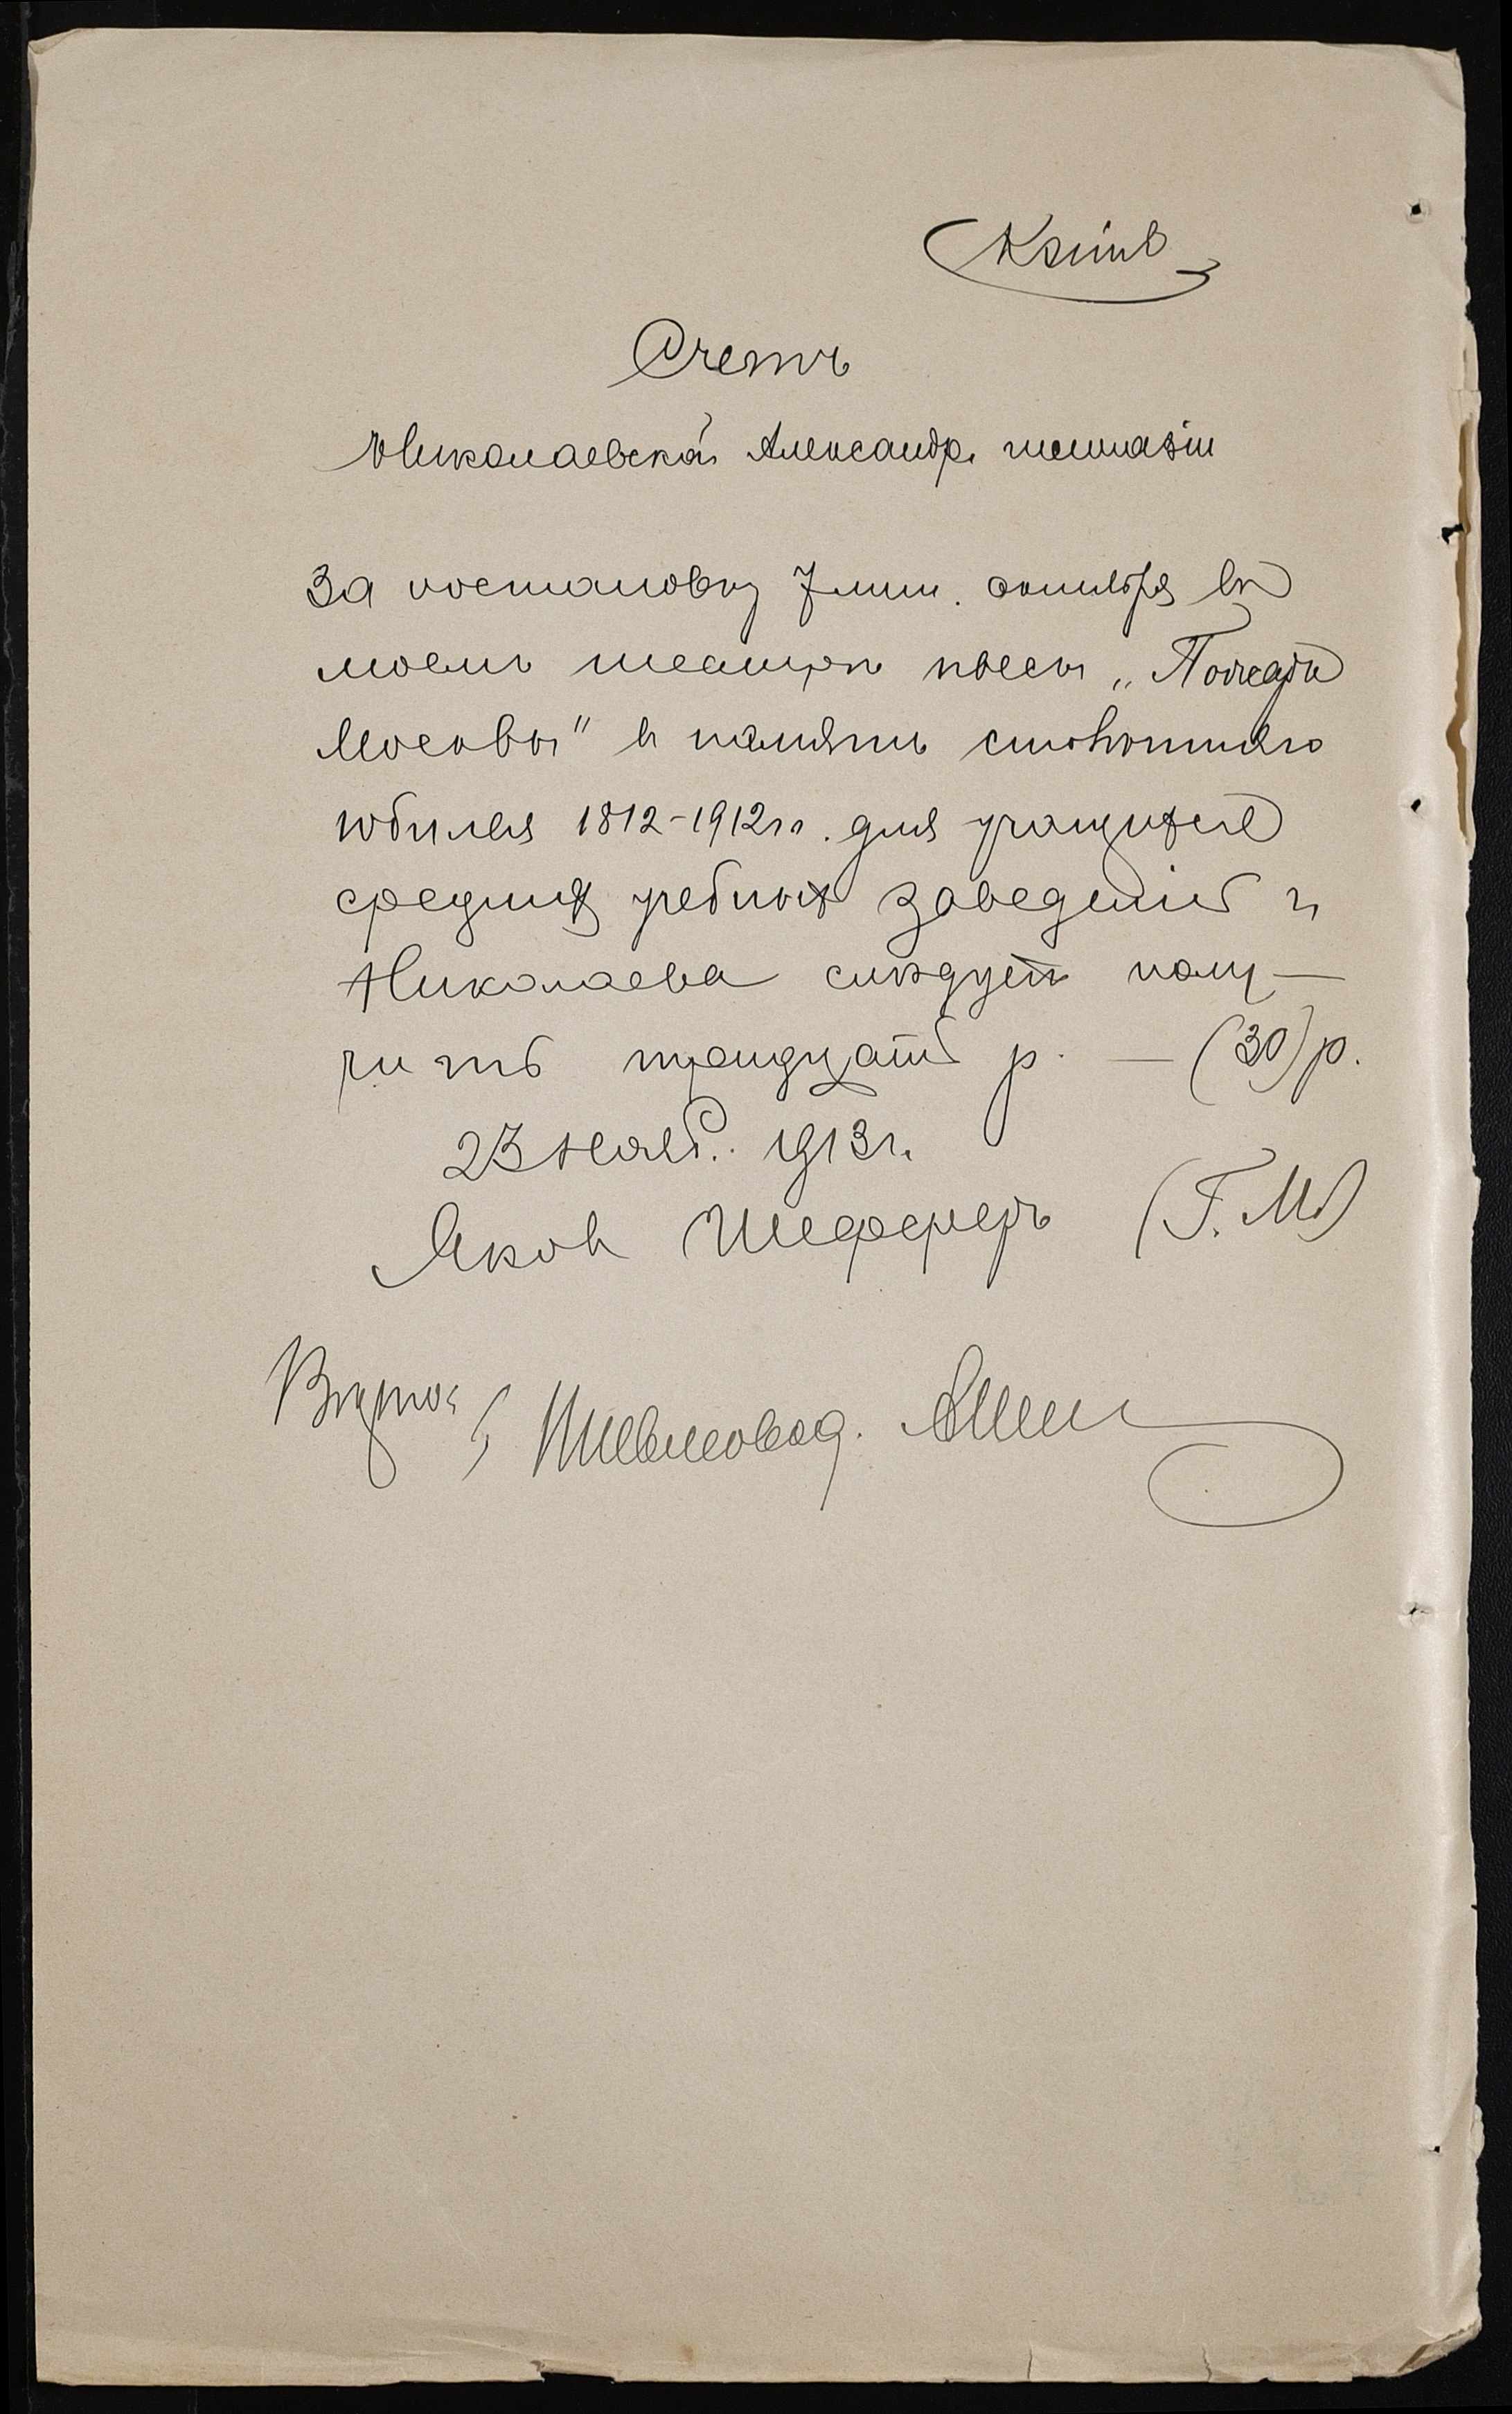 Счетъ
Николаевской Александр. гимназіи
За постановку 7 мин. октября въ
моемъ театрѣ пьесы „Пожаръ
Москвы" въ память столѣтняго
юбилея 1812-1912 гг. для учащихся
средних учебных заведеній г.
Николаева слѣдуетъ полу-
чить тридцать р. — (30) р.
23 Нояб. 1913 г.
Яков Шефферъ (Г. М.)